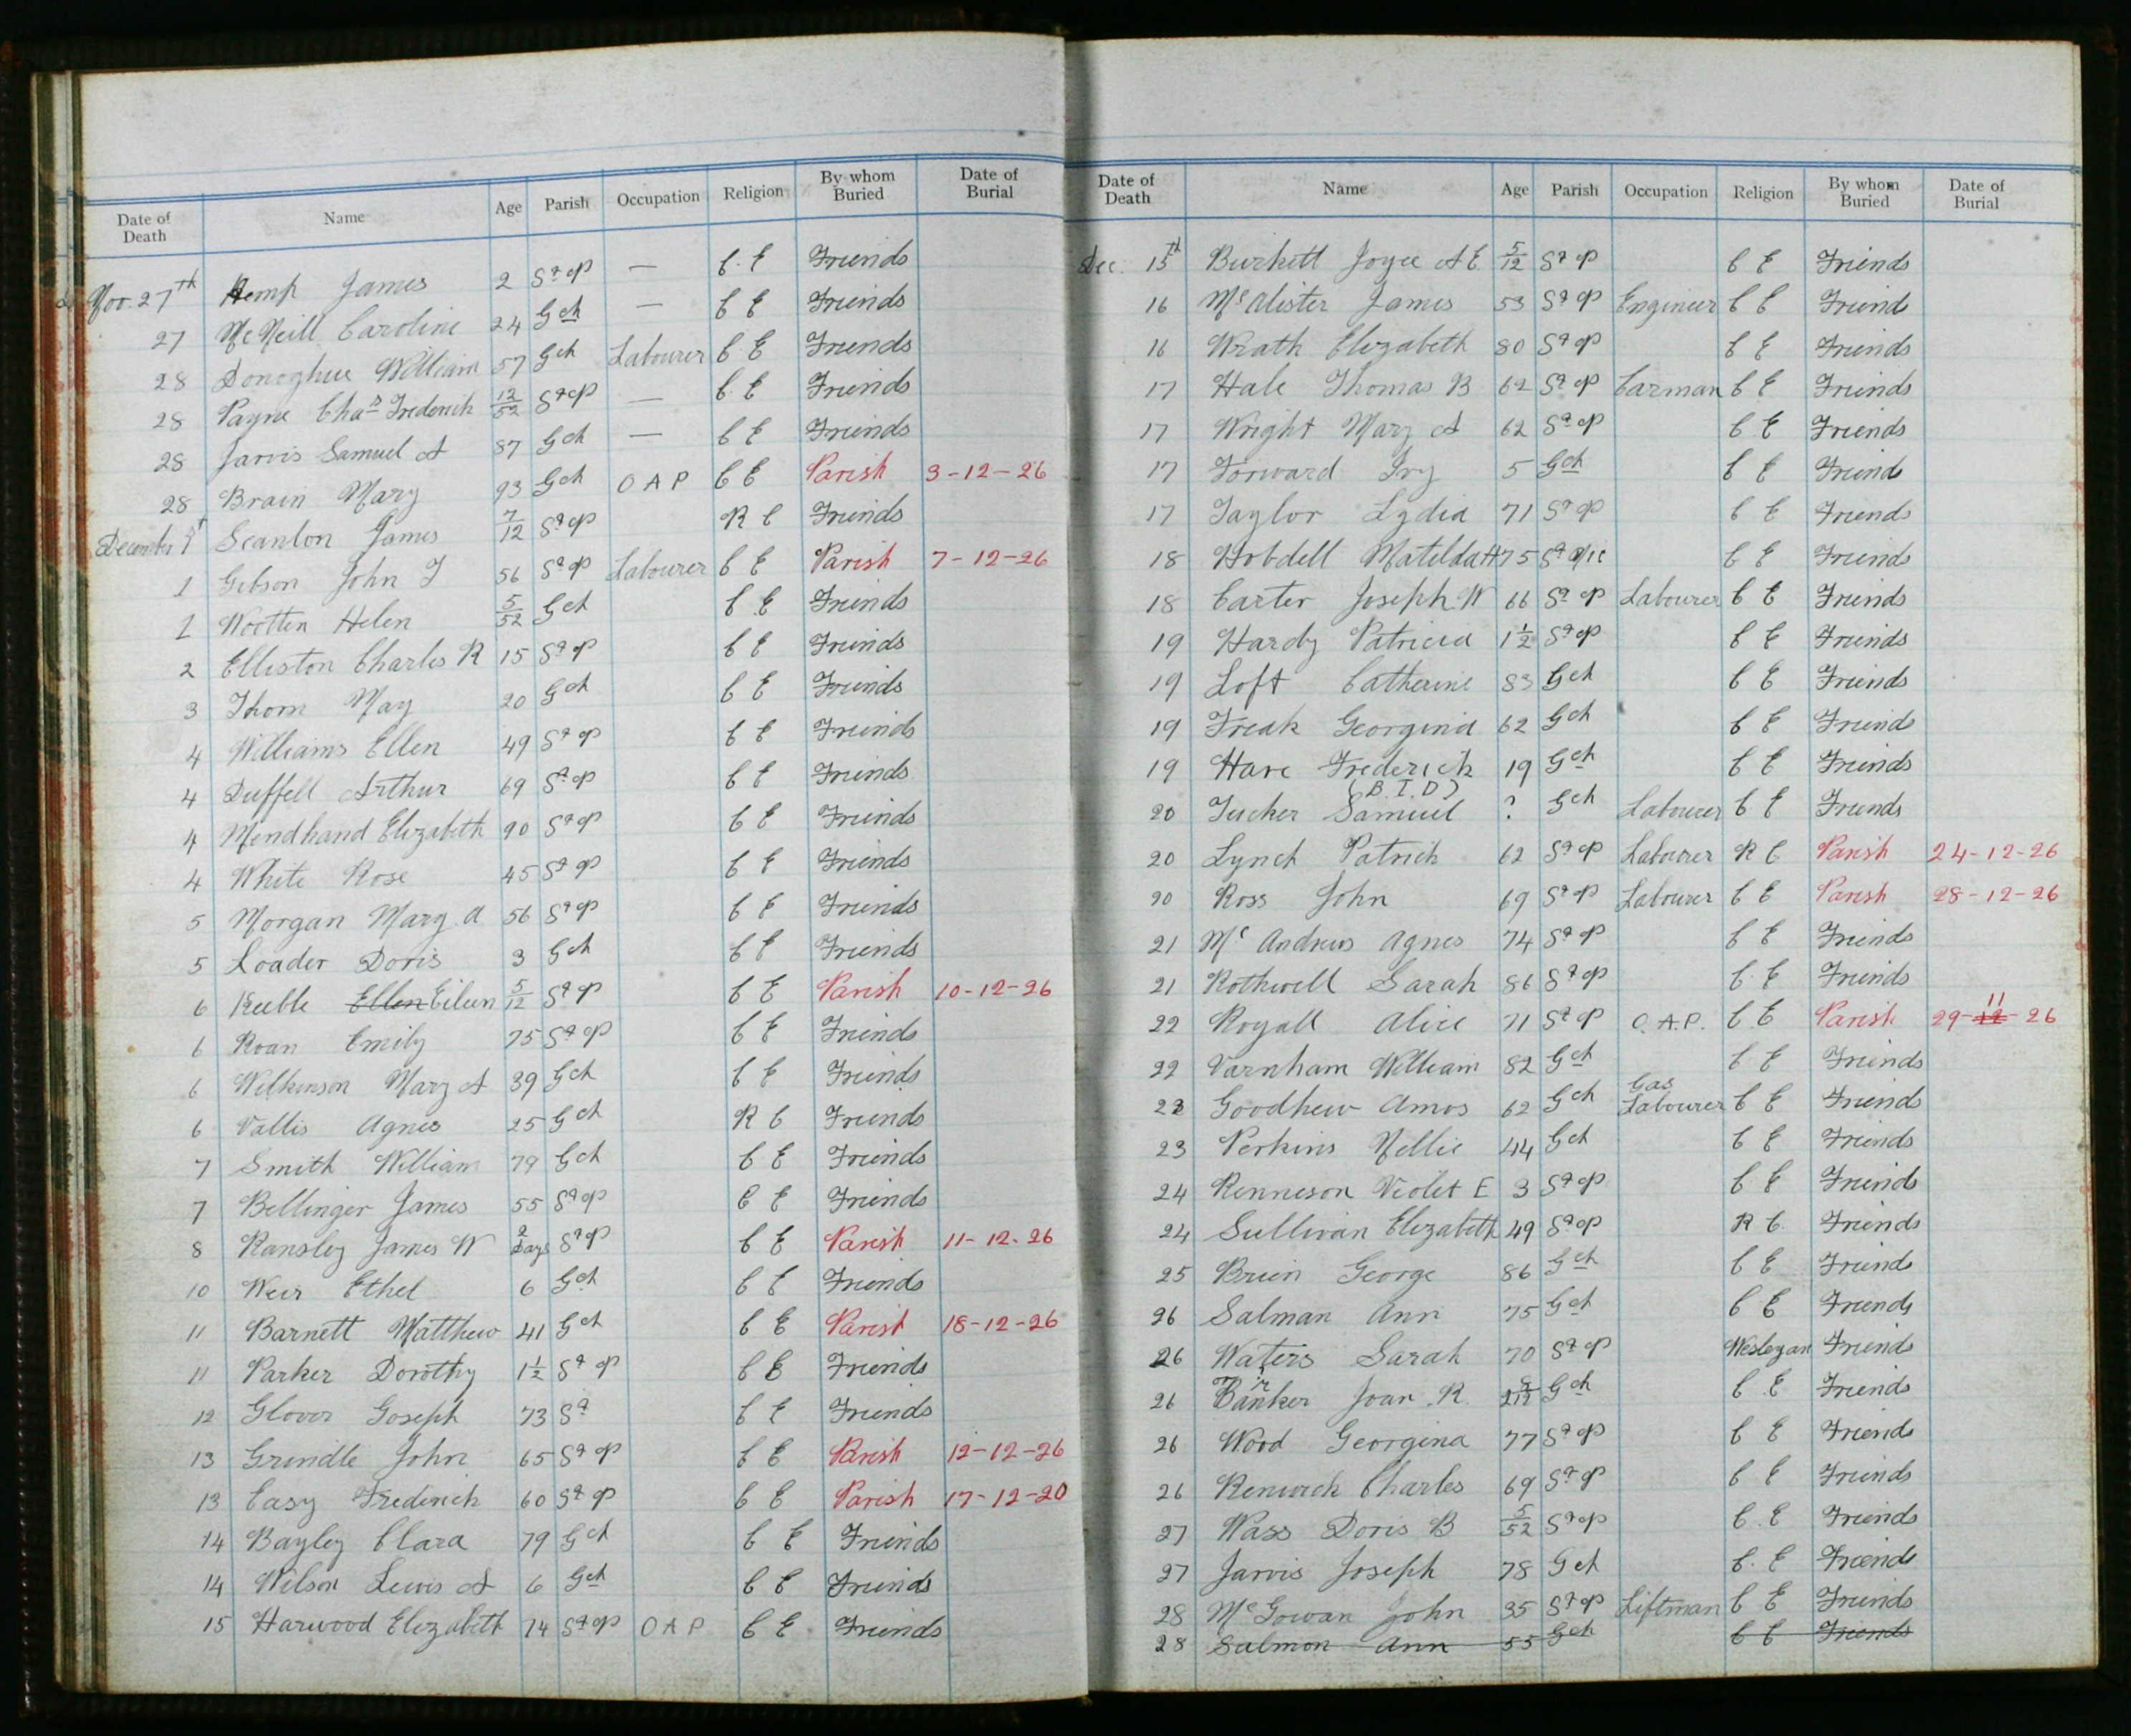 Date of Death Name Age Parish Occupation Religion By whom Buried Date of Burial
Nov. 27th Kemp James 2 St P — C. E Friends
27 McNeill Caroline 24 Gch — C E Friends
28 Donoghue William 57 Gch Labourer C E Friends
28 Payne Chas Frederick 12/52 St P — C. E Friends
28 Jarvis Samuel A 87 Gch — C E Friends
28 Brain Mary 93 Gch O A P C E Parish 3-12-26
December 1st Scanlon James 7/12 St P R C Friends
1 Gibson John T 56 St P Labourer C E Parish 7-12-26
1 Wootten Helen 5/52 Gch C E Friends
2 Elliston Charles R 15 St P C E Friends
3 Thorn May 20 Gch C E Friends
4 Williams Ellen 49 St P C E Friends
4 Duffell Arthur 69 St P C E Friends
4 Mendhand Elizabeth 90 St P C E Friends
4 White Rose 45 St P C E Friends
5 Morgan Mary. A 56 St P C E Friends
5 Loader Doris 3 Gch C E Friends
6 Keeble Ellen Eileen 5/12 St P C E Parish 10-12-26
6 Roan Emily 75 St P C E Friends
6 Wilkinson Mary A 39 Gch C E Friends
6 Vallis Agnes 25 Gch R C Friends
7 Smith William 79 Gch C E Friends
7 Bellinger James 55 St P C E Friends
8 Ransley James W 2 Days St P C E Parish 11-12-26
10 Weir Ethel 6 Gch C E Friends
11 Barnett Matthew 41 Gch C E Parish 18-12-26
11 Parker Dorothy 1½ St P C E Friends
12 Glover Goseph 73 St C E Friends
13 Grindle John 65 St P C E Parish 12-12-26
13 Casy Frederick 60 St P C E Parish 17-12-20
14 Bayley Clara 79 Gch C E Friends
14 Wilson Lewis A 6 Gch C E Friends
15 Harwood Elizabeth 74 St P O A P C E Friends
Date of Death Name Age Parish Occupation Religion By whom Buried Date of Burial
Dec. 15th Burkett Joyce A E 5/12 St P C E Friends
16 McAlister James 53 St P Engineer C E Friends
16 Wrath Elizabeth 80 St P C E Friends
17 Hale Thomas B 62 St P Carman C E Friends
17 Wright Mary A 62 St P C E Friends
17 Forward Ivy 5 Gch C E Friends
17 Taylor Lydia 71 St P C E Friends
18 Hobdell Matilda H 75 St Nic C E Friends
18 Carter Joseph. W 66 St P Labourer C E Friends
19 Hardy Patricia 1½ St P C E Friends
19 Loft Catherine 83 Gch C E Friends
19 Freak Georgina 62 Gch C E Friends
19 Hare Frederick 19 Gch C E Friends
(B. I. D)
20 Tucker Samuel ? Gch Labourer C E Friends
20 Lynch Patrick 62 St P Labourer R C Parish 24-12-26
20 Ross John 69 St P Labourer C E Parish 28-12-26
21 Mc Andrews Agnes 74 St P C E Friends
21 Rothwell Sarah 86 St P C. E Friends
22 Royall Alice 71 St P O. A. P. C E Parish 29-12 11-26
22 Varnham William 82 Gch C. E Friends
22 Goodhew Amos 62 Gch Gas Labourer C E Friends
23 Perkins Nellie 44 Gch C E Friends
24 Renneson Violet E 3 St P C E Friends
24 Sullivan Elizabeth 49 St P R C. Friends
25 Brien George 86 Gch C E Friends
26 Salman Ann 75 Gch C E Friends
26 Waters Sarah 70 St P Wesleyan Friends
26 Joan. R. Gch C. E Friends
26 Wood Georgina 77 St P C E Friends
26 Renwick Charles 69 St P C E Friends
27 Wass Doris B 5/52 St P C. E Friends
27 Jarvis Joseph 78 Gch C. E Friends
28 McGowan John 35 St P Liftman C E Friends
28 Salmon Ann 55 Gch C E Friends